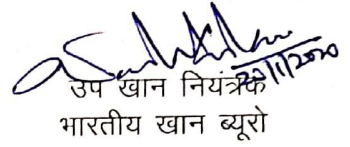 20/1/2020
उप खान नियंत्रक
भारतीय खान ब्यूरो